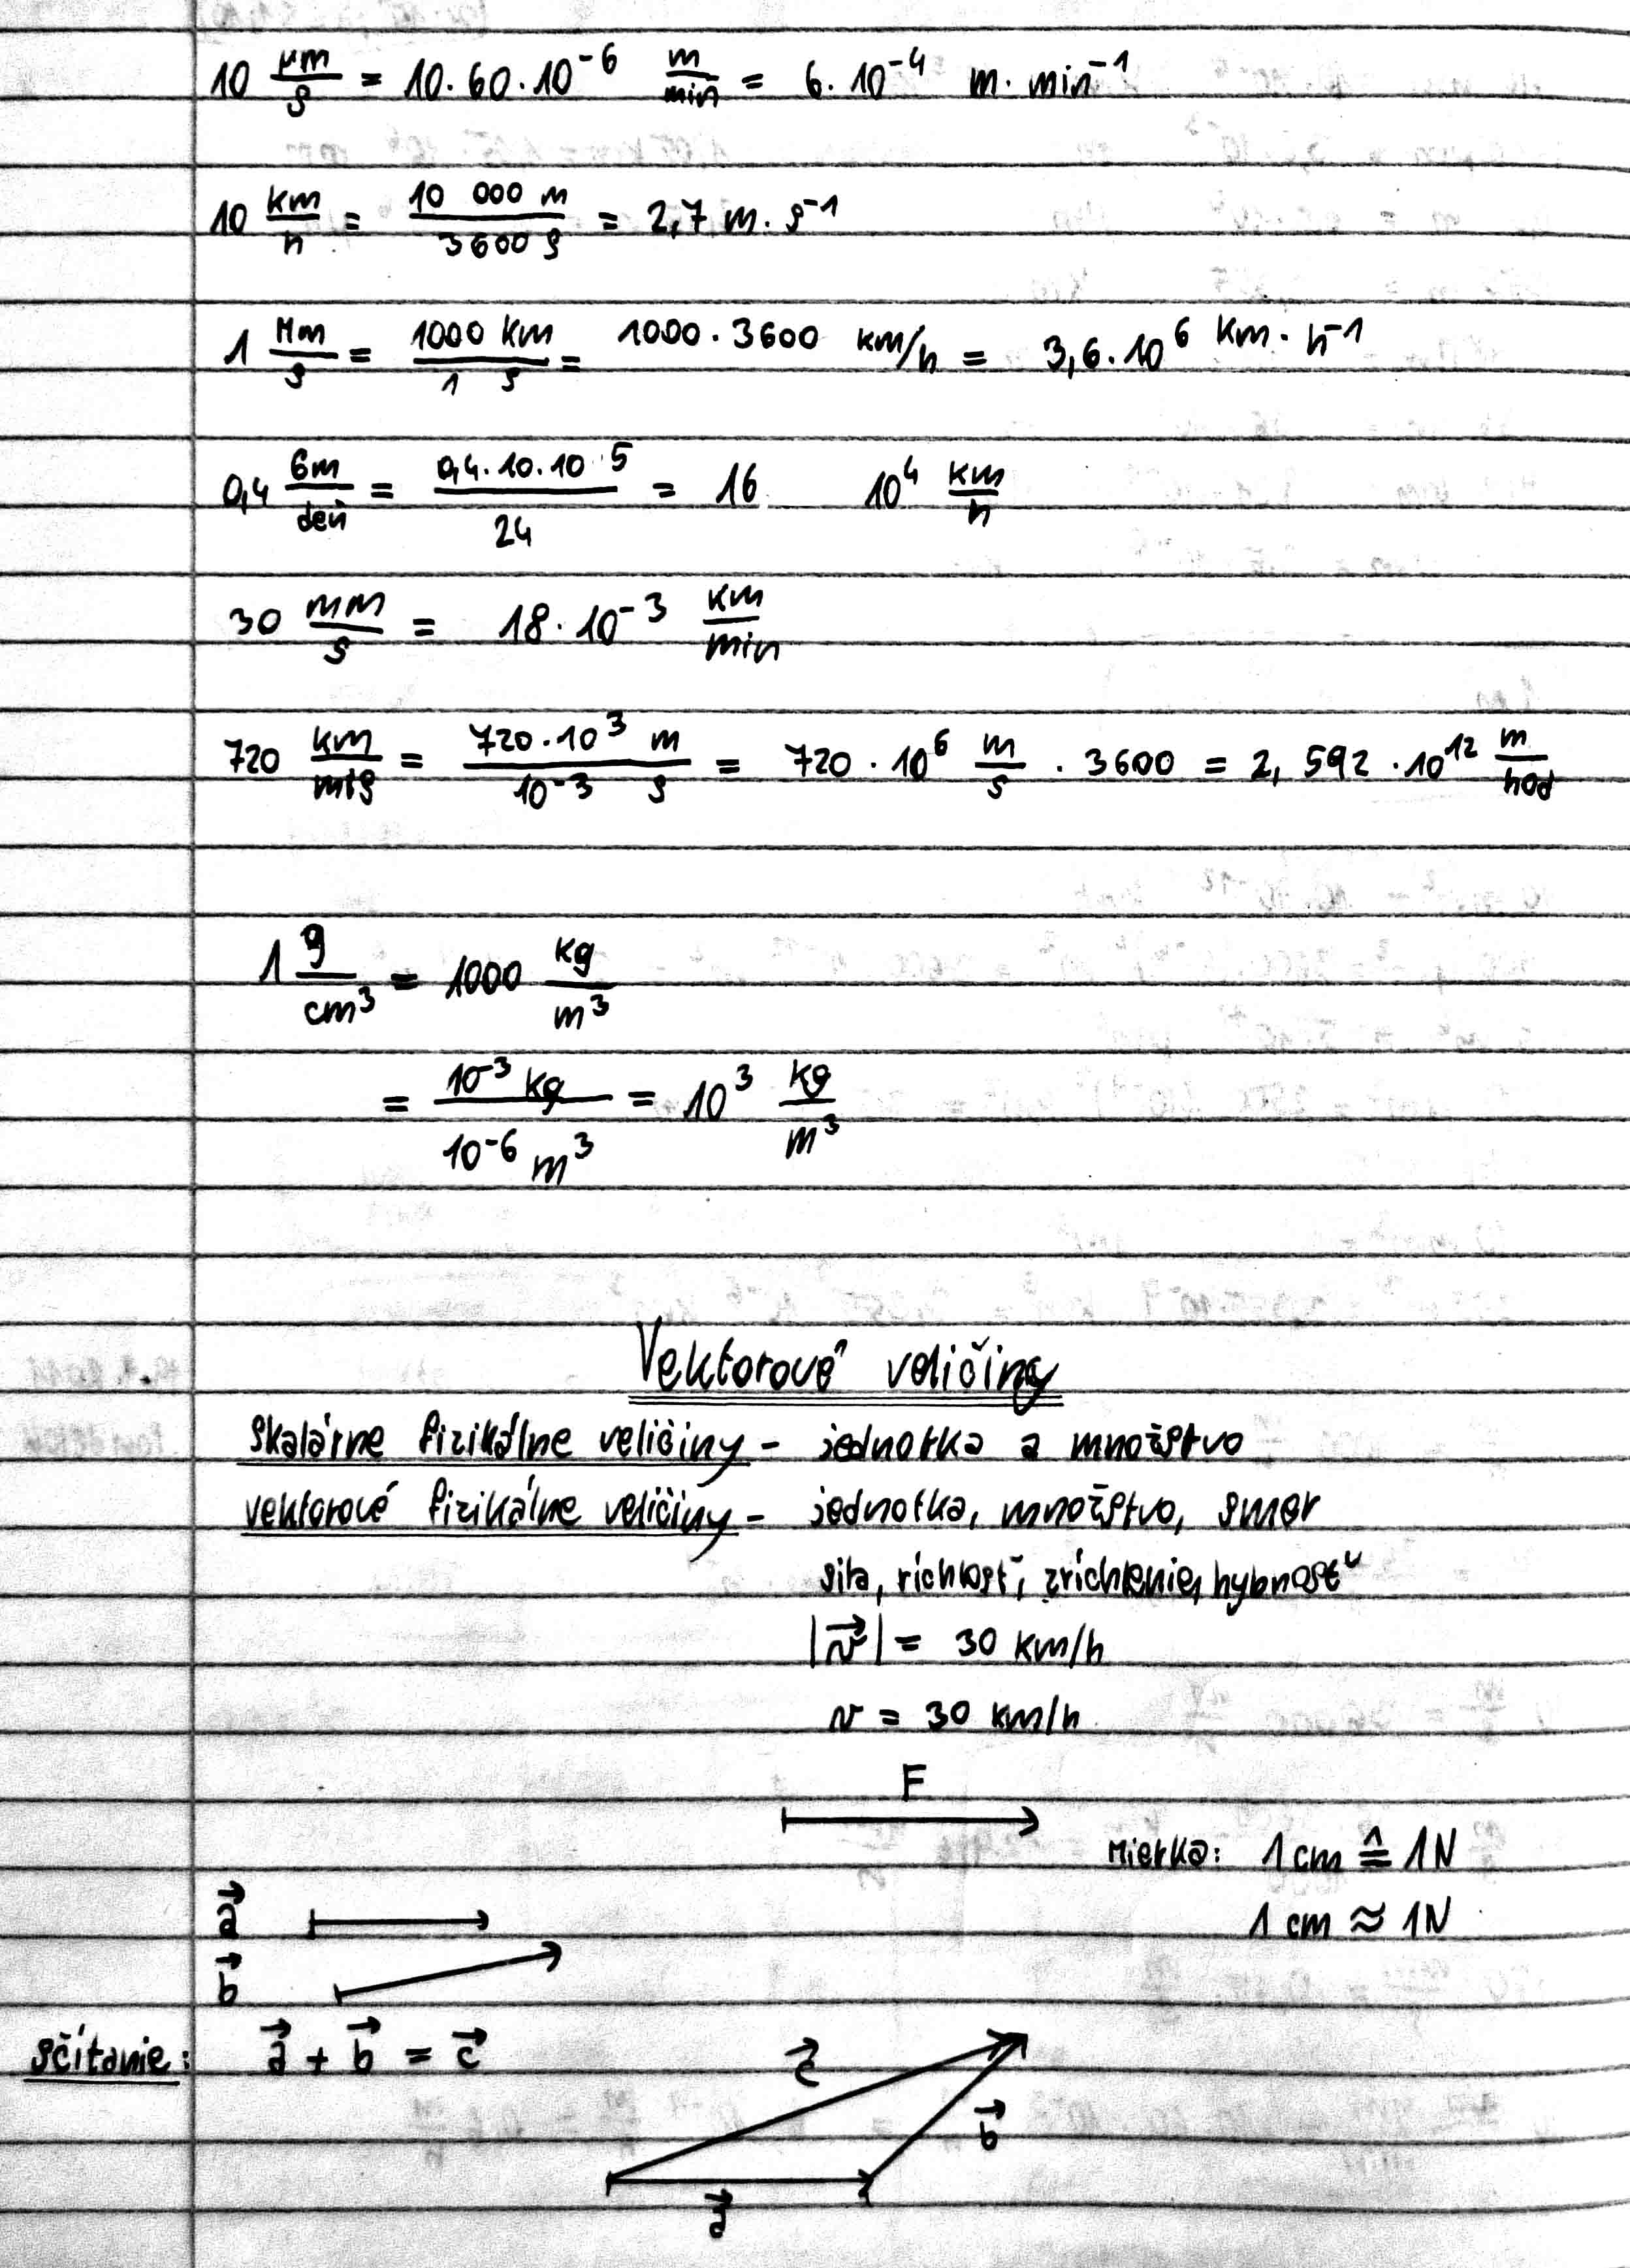 10 μm/s = 10.60.10⁻⁶ m/min = 6.10⁻⁴ m.min⁻¹
10 km/h = 10 000 m/3600 s = 2,7 m.s⁻¹
1 Mm/s = 1000 km/1 s = 1000.3600 km/h = 3,6.10⁶ km.h⁻¹
0,4 Gm/deň = 0,4.10.10 5/24 = 16 10⁴ km/h
30 mm/s = 18.10⁻³ km/min
720 km/ms = 720.10³ m/10⁻³ s = 720.10⁶ m/s . 3600 = 2,592.10¹² m/hod
1 g/cm³ = 1000 kg/m³
= 10⁻³ kg/10⁻⁶ m³ = 10³ kg/m³
Vektorové veličiny
skalárne fizikálne veličiny - jednotka a množstvo
vektorové fizikálne veličiny - jednotka, množstvo, smer
sila, richlosť, zrichlenie, hybnosť
|v⃗| = 30 km/h
v = 30 km/h
F
Mierka: 1 cm ≙ 1N
1 cm ≈ 1N
a⃗
b⃗
sčítanie: a⃗ + b⃗ = c⃗
c⃗
b⃗
a⃗